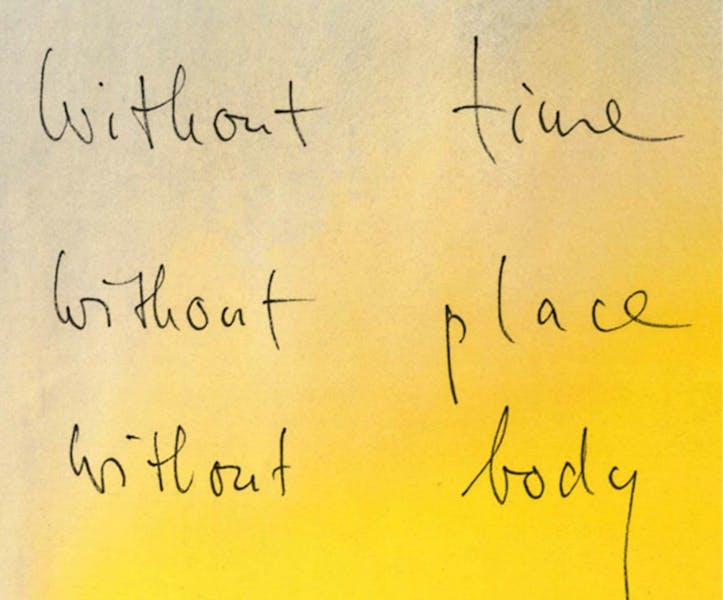 Without time
Without place
Without body